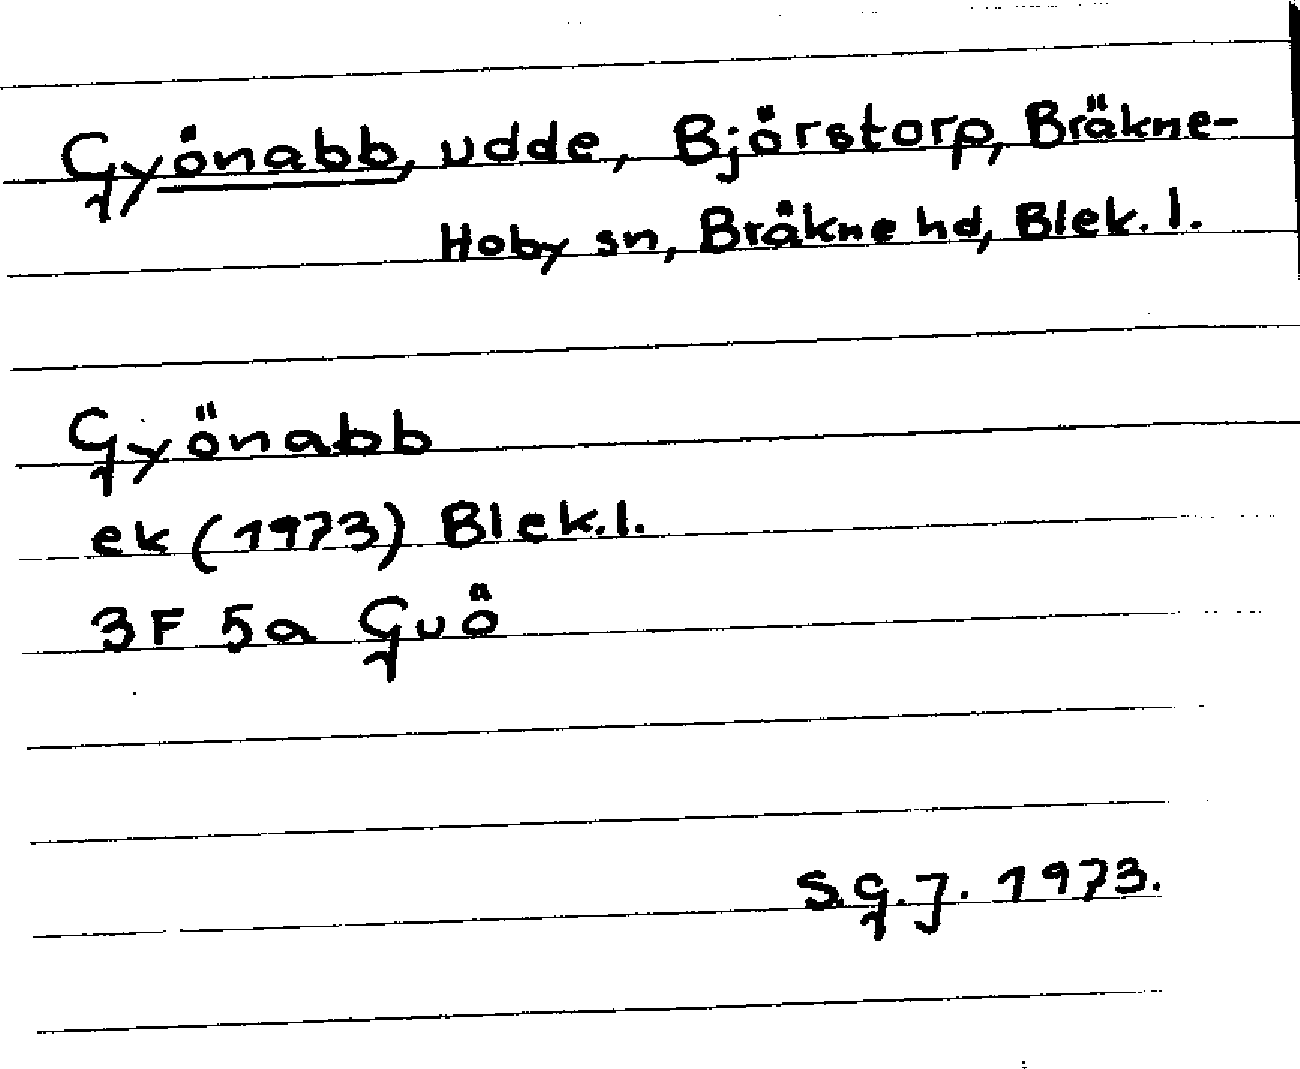 Gyönabb, udde, Björstorp, Bräkne-
Hoby sn, Bräkne hd, Blek. l.
Gyönabb
ek (1973) Blek. l.
3F 5a Guö
S.G.J. 1973.